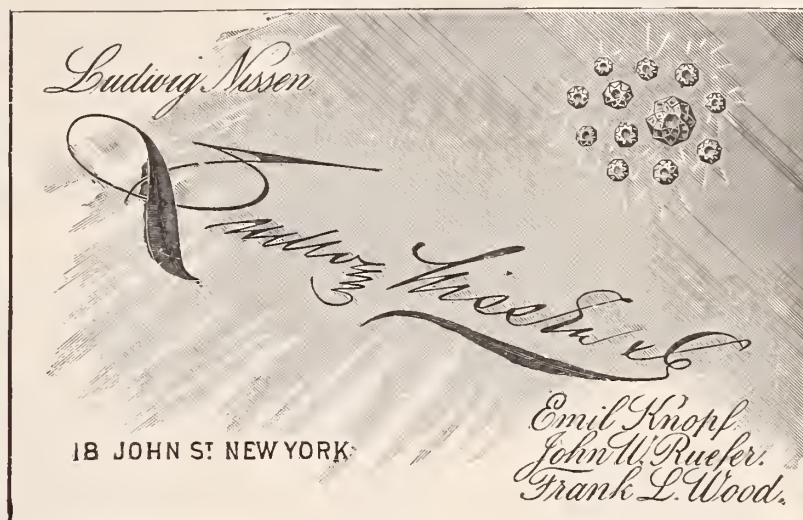 Ludwig Nissen
Ludwig Nissen & Co
18 JOHN ST NEW YORK
Emil Knopf.
John W. Ruefer.
Frank L. Wood.